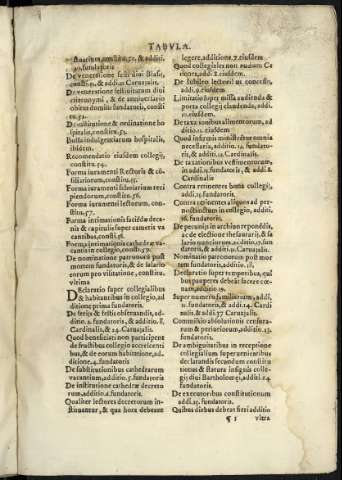 TABVLA.
fundatoris
De veneratione festi diui Blasij,
constit. & additi. Caruajalis.
De veneratione festiuitatum diui
Hieronymi, & de anniuersario
obitus domini fundatoris, consti
tu. 52.
De institutione & ordinatione ho
spitalis, constitu. 53.
Bulla indulgentiarum hospitalis,
ibidem.
Recomendatio eiusdem collegij,
constitu. 54.
Forma iuramenti Rectoris & cõ
siliariorum, constitu. 55.
Forma iuramenti scholarium reci
piendorum, constitu. 56.
Forma iuramenti lectorum, constitu.
57.
Forma intimationis faciẽdæ deca-
nis & capitulis super cameris va
cantibus, consti. 58.
Forma intimationis cathedræ va-
cantis in collegio, constitu. 59.
De nominatione patronorũ post
mortem fundatoris, & de salario
eorum pro visitatione, constitu.
vltima
Declaratio super collegialibus
& habitantibus in collegio, ad
ditione prima fundatoris.
De ferijs & festis obseruandis, ad-
ditio. 2. fundatoris, & additio. 8.
Cardinalis & 24. Caruajalis.
Quod beneficiati non participent
de fructibus collegio accrescenti
bus, & de eorum habitatione, ad-
ditione. 4. fundatoris
De substitutionibus cathedrarum
vacantium, additio. 5. fundatoris
De institutione cathedræ decreto
rum, additio. 6. fundatoris.
Qualiter lectores decretorum in-
stituantur, & qua hora debeant
legere, additione. 7. eiusdem
Quod collegiales non audiant Ca
nones, addi. 8. eiusdem
De subsidio lectori iu. concesso,
addi. 9. eiusdem
Limitatio super missa audienda &
porta collegij claudenda, addi-
tio. 10. eiusdem
De taxationibus alimentorum, ad
ditio. 11. eiusdem
Quod infirmis ministrentur omnia
necessaria, additio. 12. fundato-
ris, & additio. 12. Cardinalis
De taxationibus vestimentorum,
in addi. 13. fundatoris, & addi. 8
Cardinalis
Contra retinentes bona collegij,
addi. 15. fundatoris.
Contra retinentes aliquos ad per-
noctandum in collegio, additi.
16. fundatoris
De pecunijs in archiuo reponẽdis,
ac de electione thesaurarij, & sa
lario nunciorum, additio. 17. fun
datoris, & additio. Caruajalis.
Nominatio patronorum post mor
tem fundatoris, additio. 18.
Declaratio super temporibus, qui
bus pauperes debeãt facere cœ-
nam, additio. 19.
Super numero familiarium, addi.
21. fundatoris, & addi. 14. Cardi
nalis, & addi. 37 Caruajalis.
Commissio absolutionis censura-
rum & periuriorum, additio. 23.
fundatoris.
De ambiguitatibus in receptione
collegialium super ætneribus
declarandis secundum constitu
tiones & statuta insignis colle-
gij diui Bartholomei, additi. 24.
fundatoris.
De executoribus constitutionum
addi. 25. fundatoris.
Quibus diebus debeat fieri additio
¶ 1 vltra